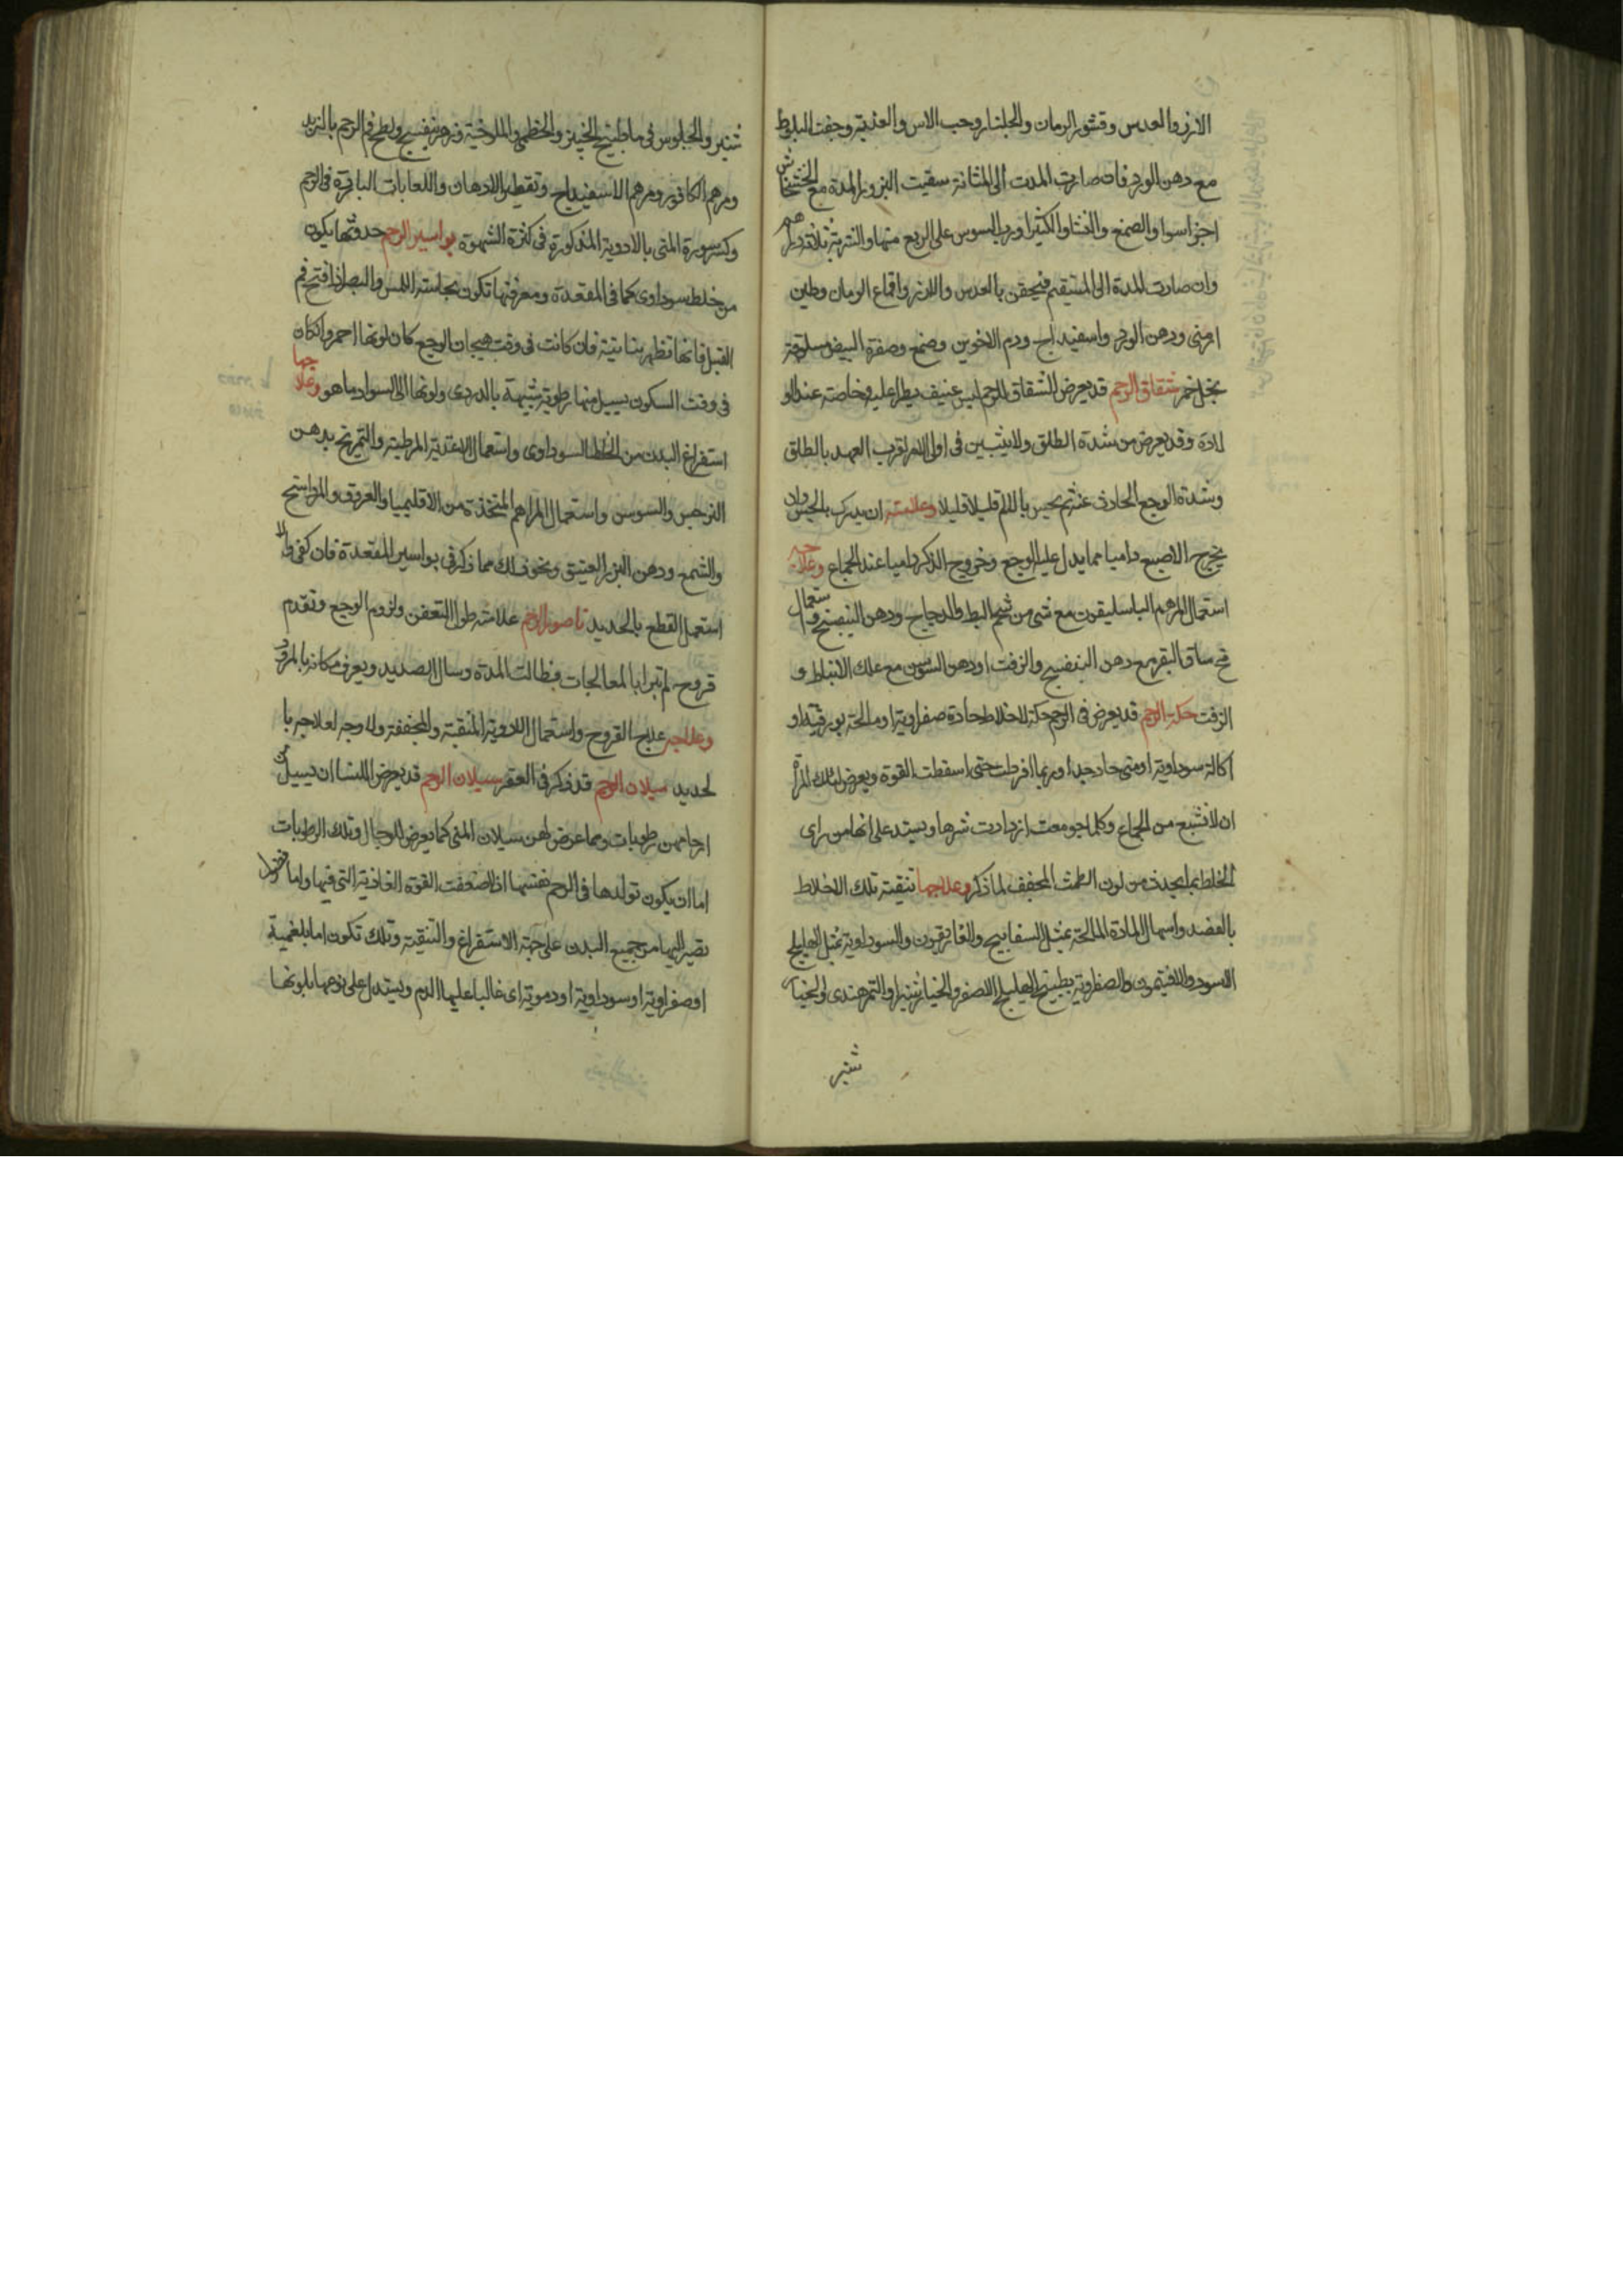 الارز والعدس وقشور الرمان والجلنار وحب الاس والعذبة وجفت البلوط
مع دهن الورد فان صارت المدت الى المثانة سقيت البزور المدة مع الخشخاش
اجزا سوا والصمغ والنشا والكثيرا ورب السوس على الربع منها والشربة ثلاثة دراهم
وان صارت المدة الى المستقيم فيحقن بالعدس والارز واقماع الرمان وطين
ارمنى ودهن الورد واسفيداج ودم الاخوين وصمغ وصفرة البيض مسلوقة
بخل خمر شقاق الرحم قد يعرض للشقاق للرحم ليبس عنيف يطرا عليه وخاصة عند الو
لادة وقد يعرض من شدة الطلق ولا يتبين فى اول الامر لقرب العهد بالطلق
وشدة الوجع الحادث عنه ثم يحس بالالم قليلا قليلا وعلامته ان يدرك بالجس وان
يخرج الاصبع داميا مما يدل عليه الوجع وخروج الذكر داميا عند الجماع وعلاجه
استعمال المرهم الباسليقون مع شى من شحم البط والدجاج ودهن البنفسج واستعمال
مخ ساق البقر مع دهن البنفسج والزفت اودهن السوسن مع علك الانباط و
الزفت حكة الرحم قد يعرض فى الرحم حكة لاخلاط حادة صفراوية او مالحة بورقية او
اكالة سوداوية او منى حاد جدا وربما افرطت حتى اسقطت القوة ويعرض لتلك المراة
ان لا تشبع من الجماع وكلما جومعت ازدادت شرها ويستدل على انها من راى
الخلط بما يحدث من لون الطمث المجفف لما ذكر وعلاجها تنقية تلك الاخلاط
بالفصد واسهال المادة المالحة بمثل السفابيج والغاريقون والسوداوية بمثل الهليلج
الاسود والافتيمون والصفراوية بطبيخ الهليلج الاصفر والخيارشنبر او التمر هندى او الخيار
شنبر
شنبر والجلوس فى ماطبيخ الخبيز والخطمى والملوخية وزهر بنفسج ولطخ فم الرحم بالزبد
ومرهم الكافور ومرهم الاسفيداج وتقطير الادهان واللعابات الباردة فى الرحم
وكسر سورة المنى بالادوية المذكورة فى كثرة الشهوة بواسير الرحم حدوثها يكون
من خلط سوداوى كما فى المقعدة ومعرفتها تكون بحاسته اللمس والبصر اذا فتح فم
القبل فانها تظهر نباتية فان كانت فى وقت هيجان الوجع كان لونها احمر وان كان
فى وقت السكون يسيل منها رطوبة شبيهة بالدردى ولونها الى السواد ما هو وعلاجها
استفراغ البدن من الخلط السوداوى واستعمال الاغذية المرطبة والتمريخ بدهن
النرجس والسوسن واستعمال المراهم المتخذة من الاقليميا والعروق والمرداسنج
والشمع ودهن البزر العتيق ونحو ذلك مما ذكر فى بواسير المقعدة فان كفى والا
استعمل القطع بالحديد ناصور الرحم علامته طول التعفن ولزوم الوجع وتقدم
قروح لم تبرا بالمعالجات فطالت المدة وسال الصديد ويعرف مكانه بالمرود
وعلاجه علاج القروح واستعمال الادوية المنقية والمجففة ولا وجه لعلاجه با
لحديد سيلان الرحم قد ذكر فى العقر سيلان الرحم قد يعرض للنسا ان يسيل من
ارحامهن رطوبات وربما عرض لهن سيلان المنى كما يعرض للرجال وتلك الرطوبات
اما ان يكون تولدها فى الرحم نفسها اذا ضعفت القوة الغاذية التى فيها واما فضول
تصير اليها من جميع البدن على جهة الاستفراغ والتنقية وتلك تكون اما بلغمية
اوصفراوية او سوداوية او دموية اى غالبا عليها الدم ويستدل على نوعها بلونها